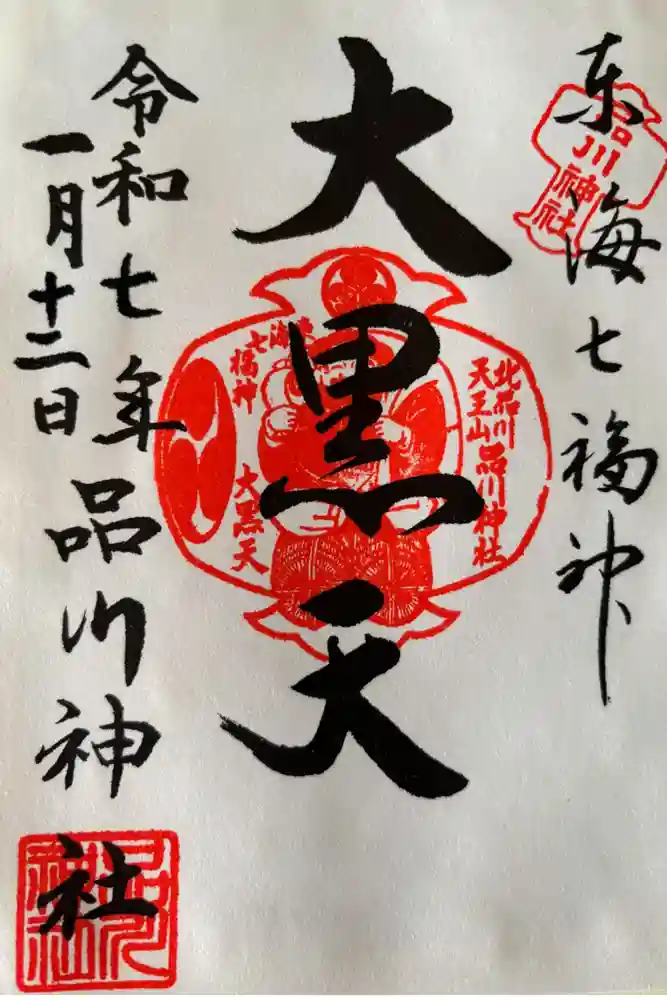 東海七福神
品川神社
大黒天
北品川
天王山
品川神社
東海
七福神
大黒天
令和七年
一月十二日
品川神社
品川神社